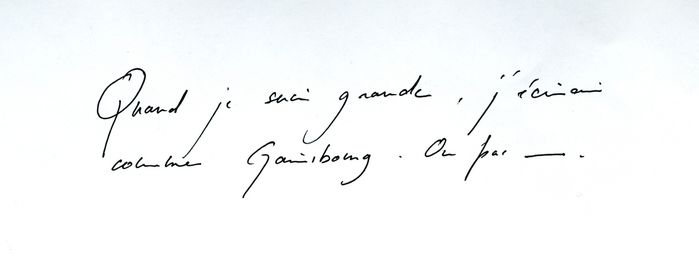 Quand je serai grande, j'écrirai
comme Gainsbourg. Ou pas —.